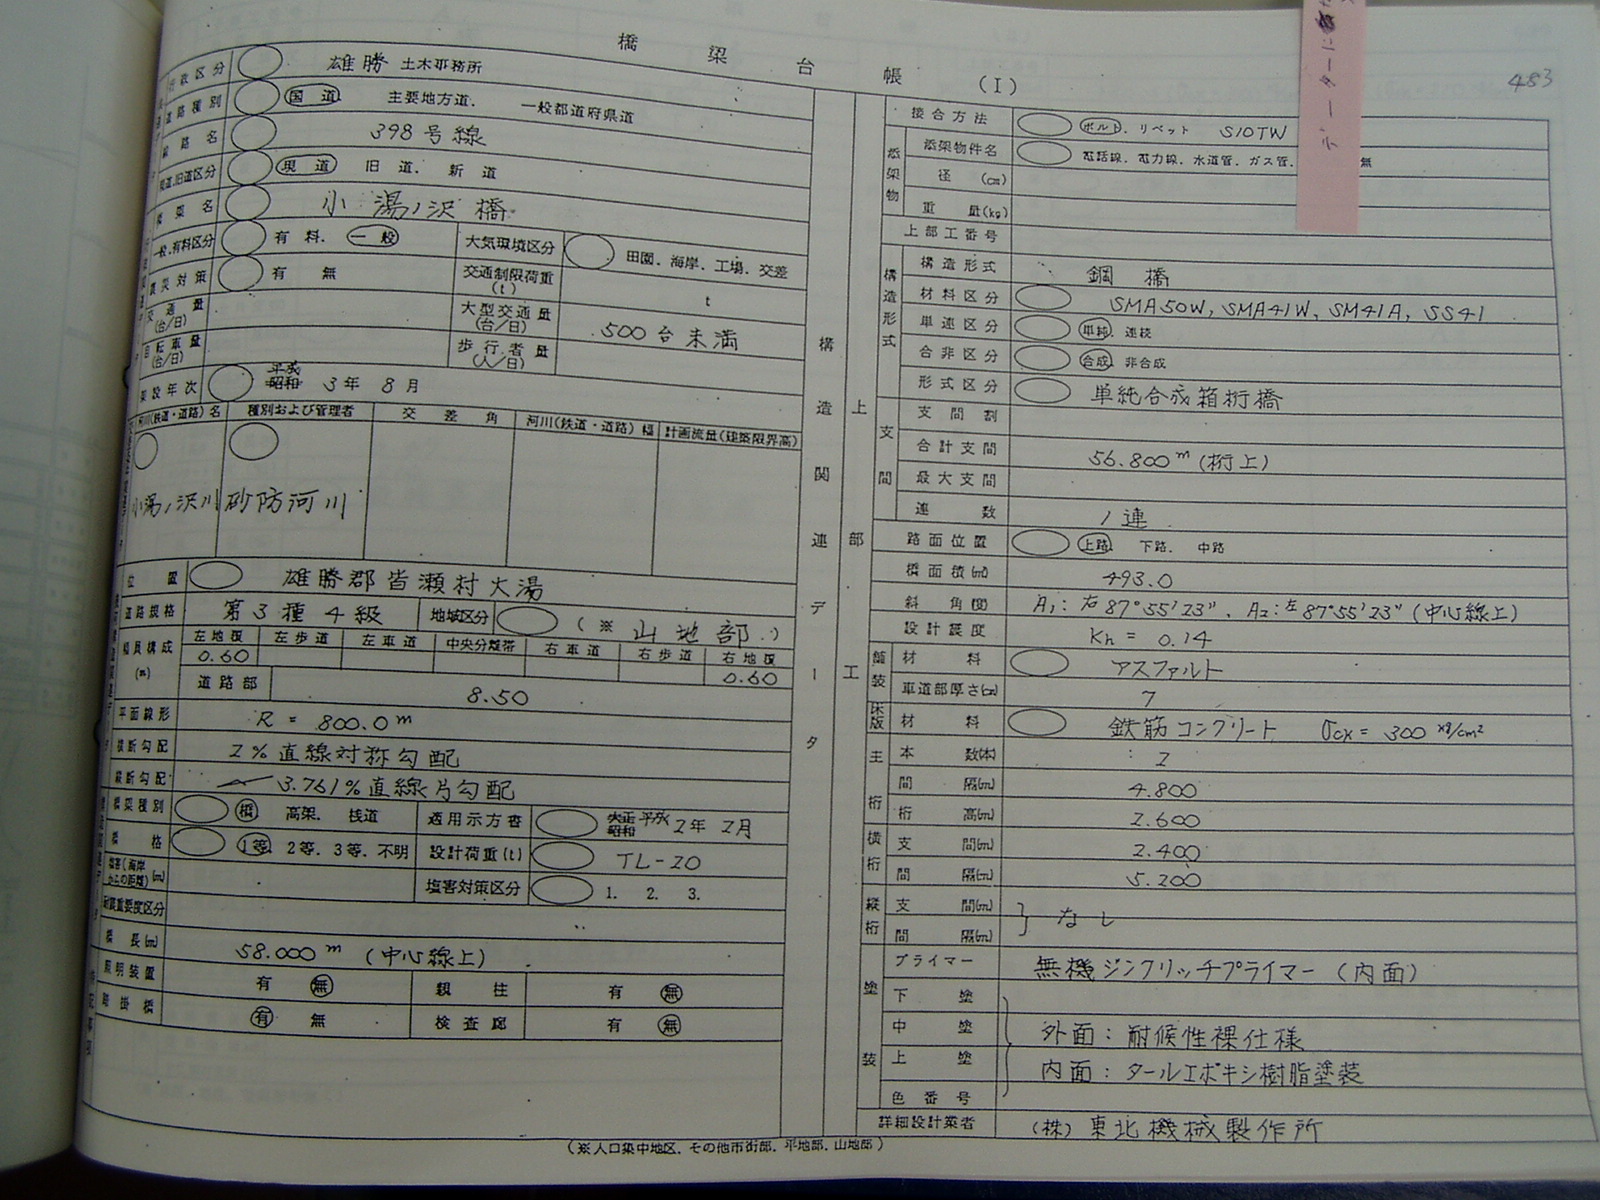 橋梁台帳 (I)
483
データーに
行政区分 雄勝 土木事務所
道路種別 国道 主要地方道. 一般都道府県道
路線名 398号線
現道.旧道区分 現道 旧道. 新道
橋梁名 小湯ノ沢橋
一般.有料区分 有料. 一般 大気環境区分 田園. 海岸. 工場. 交差
震災対策 有 無 交通制限荷重(t) t
交通量(台/日) 大型交通量(台/日) 500台未満
自転車量(台/日) 歩行者量(人/日)
架設年次 平成 昭和 3年 8月
河川(鉄道・道路)名 種別および管理者 交差角 河川(鉄道・道路)幅 計画流量(建築限界高)
小湯ノ沢川 砂防河川
位置 雄勝郡皆瀬村大湯
道路規格 第3種4級 地域区分 (※ 山地部.)
幅員構成(m) 左地覆 左歩道 左車道 中央分離帯 右車道 右歩道 右地覆
0.60 0.60
道路部 8.50
平面線形 R = 800.0m
横断勾配 2%直線対称勾配
縦断勾配 3.761%直線片勾配
橋梁種別 橋 高架. 桟道 適用示方書 大正 平成 昭和 2年 2月
橋格 1等. 2等. 3等. 不明 設計荷重(t) TL-20
塩害(海岸からの距離)(m) 塩害対策区分 1. 2. 3.
耐震重要度区分
橋長(m) 58.000m (中心線上)
照明装置 有 無 親柱 有 無
踏掛橋 有 無 検査廊 有 無
構造関連データ
上部工
接合方法 ボルト. リベット S10TW
添架物 添架物件名 電話線. 電力線. 水道管. ガス管. 無
径 (cm)
重量(kg)
上部工番号
構造形式 構造形式 鋼橋
材料区分 SMA50W, SMA41W, SM41A, SS41
単連区分 単純 連続
合非区分 合成 非合成
形式区分 単純合成箱桁橋
支間 支間割
合計支間 56.800m (桁上)
最大支間
連数 1連
路面位置 上路. 下路. 中路
橋面積(㎡) 493.0
斜角度 A1: 右87°55'23". A2: 左87°55'23" (中心線上)
設計震度 Kh = 0.14
舗装 材料 アスファルト
車道部厚さ(cm) 7
床版 材料 鉄筋コンクリート σck = 300 kg/cm2
主桁 本数(本) 2
間隔(m) 4.800
桁高(m) 2.600
横桁 支間(m) 2.400
間隔(m) 5.200
縦桁 支間(m) } なし
間隔(m)
塗装 プライマー 無機ジンクリッチプライマー (内面)
下塗
中塗 外面: 耐候性裸仕様
上塗 内面: タールエポキシ樹脂塗装
色番号
詳細設計業者 (株) 東北機械製作所
(※人口集中地区. その他市街部. 平地部. 山地部)